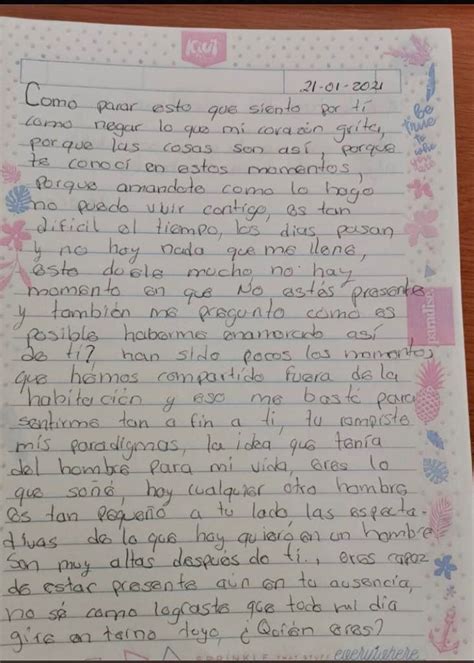 Kiut
21-01-2021
Como parar esto que siento por ti
como negar lo que mi corazón grita,
porque las cosas son así, porque
te conocí en estos momentos,
Porque amandote como lo hago
no puedo vivir contigo, es tan
dificil el tiempo, los dias pasan
y no hay nada que me llene,
esto duele mucho no hay
momento en que No estés presente
y también me pregunto como es
posible haberme enamorado así
de ti? han sido pocos los momentos
que hemos compartido fuera de la
habitación y eso me bastó para
sentirme tan a fin a ti, tu rompiste
mis paradigmas, la idea que tenía
del hombre para mi vida, eres lo
que soñé, hoy cualquier otro hombre
es tan pequeño a tu lado las especta-
divas de lo que hoy quiero en un hombre
son muy altas después de ti.., eres capaz
de estar presente aún en tu ausencia,
no sé como lograste que todo mi día
gire en torno tuyo ¿Quién eres?
Be
true
to
who
you
are
paradise
SPRINKLE THAT STUFF everywhere